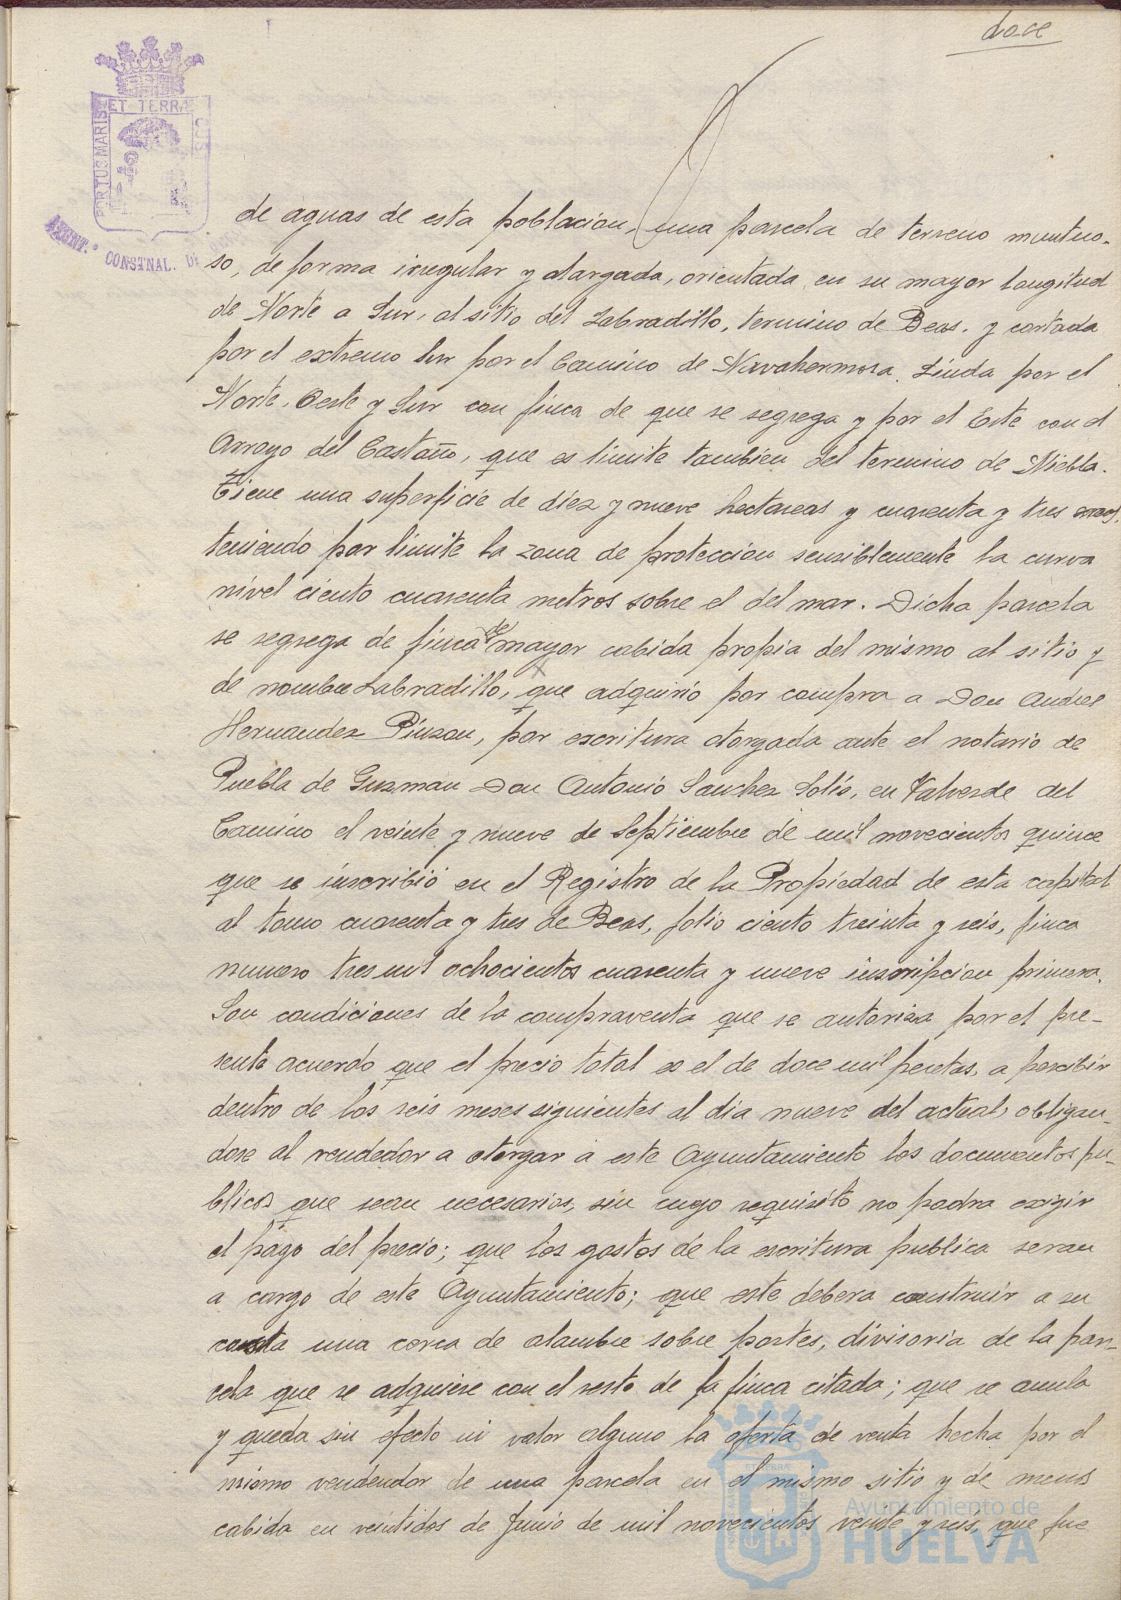 doce
PORTUS MARIS ET TERRÆ CUS
AYUNT.º CONSTNAL. DE
de aguas de esta poblacion, una parcela de terreno montuo-
so, de forma irregular y alargada, orientada en su mayor longitud
de Norte a Sur, al sitio del Labradillo, termino de Beas, y cortada
por el extremo Sur por el Camino de Navahermosa. Linda por el
Norte, Oeste y Sur con finca de que se segrega y por el Este con el
Arroyo del Castaño, que es limite tambien del termino de Niebla.
Tiene una superficie de diez y nueve hectareas y cuarenta y tres areas,
teniendo por limite la zona de proteccion sensiblemente la curva
nivel ciento cuarenta metros sobre el del mar. Dicha parcela
se segrega de finca de mayor cabida propia del mismo al sitio y
de nombre Labradillo, que adquirió por compra a Don Andres
Hernandez Pinzon, por escritura otorgada ante el notario de
Puebla de Guzman Don Antonio Sanchez Solís, en Valverde del
Camino el veinte y nueve de Septiembre de mil novecientos quince
que se inscribió en el Registro de la Propiedad de esta capital
al tomo cuarenta y tres de Beas, folio ciento treinta y seis, finca
numero tres mil ochocientos cuarenta y nueve inscripcion primera.
Son condiciones de la compraventa que se autoriza por el pre-
sente acuerdo que el precio total es el de doce mil pesetas, a percibir
dentro de los seis meses siguientes al dia nueve del actual, obligan-
dose al vendedor a otorgar a este Ayuntamiento los documentos pu-
blicos que sean necesarios, sin cuyo requisito no podra exigir
el pago del precio; que los gastos de la escritura publica seran
a cargo de este Ayuntamiento; que este debera construir a su
costa una cerca de alambre sobre postes, divisoria de la par-
cela que se adquiere con el resto de la finca citada; que se anula
y queda sin efecto ni valor alguno la oferta de venta hecha por el
mismo vendendor de una parcela en el mismo sitio y de menos
cabida en veintidos de Junio de mil novecientos veinte y seis, que fue
Ayuntamiento de
HUELVA